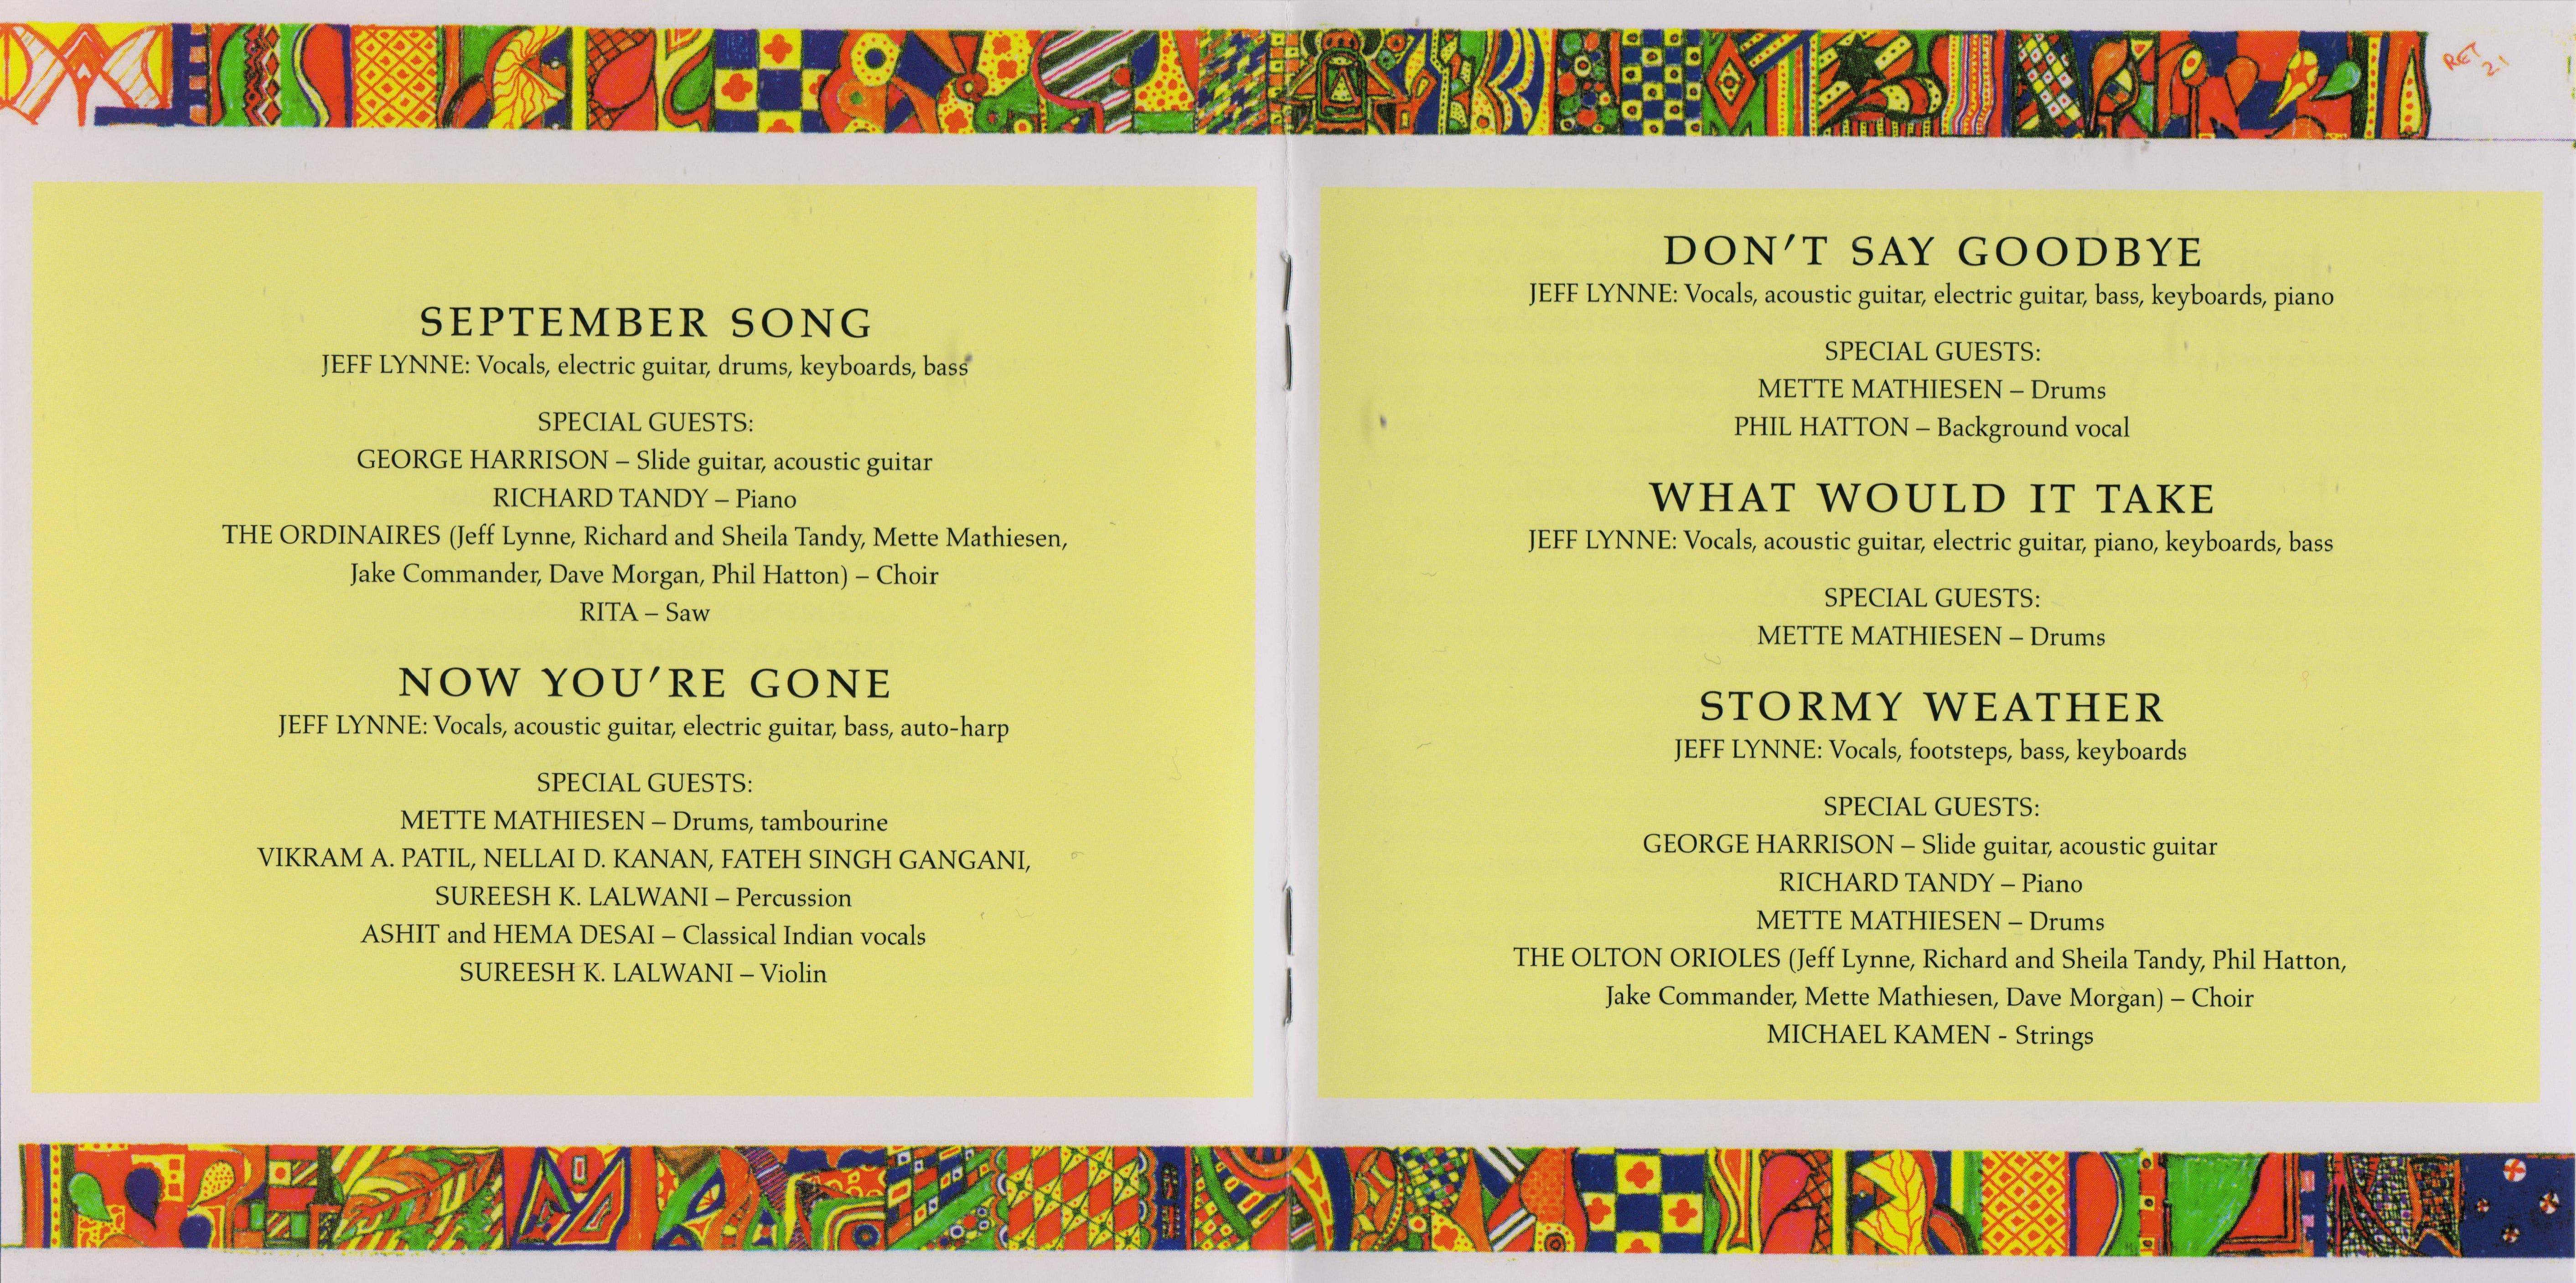 RET
21
SEPTEMBER SONG
JEFF LYNNE: Vocals, electric guitar, drums, keyboards, bass
SPECIAL GUESTS:
GEORGE HARRISON – Slide guitar, acoustic guitar
RICHARD TANDY – Piano
THE ORDINAIRES (Jeff Lynne, Richard and Sheila Tandy, Mette Mathiesen,
Jake Commander, Dave Morgan, Phil Hatton) – Choir
RITA – Saw
NOW YOU'RE GONE
JEFF LYNNE: Vocals, acoustic guitar, electric guitar, bass, auto-harp
SPECIAL GUESTS:
METTE MATHIESEN – Drums, tambourine
VIKRAM A. PATIL, NELLAI D. KANAN, FATEH SINGH GANGANI,
SUREESH K. LALWANI – Percussion
ASHIT and HEMA DESAI – Classical Indian vocals
SUREESH K. LALWANI – Violin
DON'T SAY GOODBYE
JEFF LYNNE: Vocals, acoustic guitar, electric guitar, bass, keyboards, piano
SPECIAL GUESTS:
METTE MATHIESEN – Drums
PHIL HATTON – Background vocal
WHAT WOULD IT TAKE
JEFF LYNNE: Vocals, acoustic guitar, electric guitar, piano, keyboards, bass
SPECIAL GUESTS:
METTE MATHIESEN – Drums
STORMY WEATHER
JEFF LYNNE: Vocals, footsteps, bass, keyboards
SPECIAL GUESTS:
GEORGE HARRISON – Slide guitar, acoustic guitar
RICHARD TANDY – Piano
METTE MATHIESEN – Drums
THE OLTON ORIOLES (Jeff Lynne, Richard and Sheila Tandy, Phil Hatton,
Jake Commander, Mette Mathiesen, Dave Morgan) – Choir
MICHAEL KAMEN - Strings